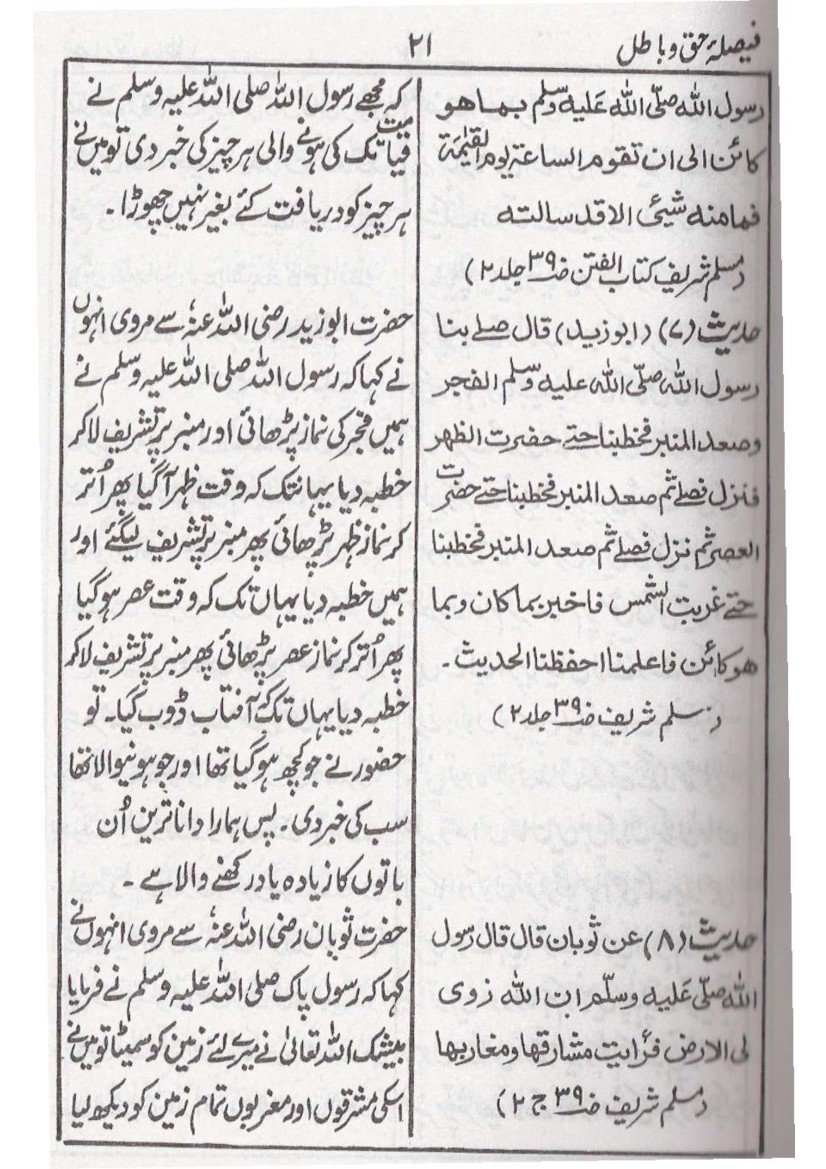 فیصلۂ حق و باطل
۲۱
رسول الله صلّى الله عَليه وسَلّم بما هو
كائن الى ان تقوم الساعة يوم القيٰمة
فما منه شيئ الا قد سالته
(مسلم شریف کتاب الفتن ص۳۹ جلد ۲)
حدیث (۷) (ابو زید) قال صلے بنا
رسول الله صلّى الله عليه وسلّم الفجر
وصعد المنبر فخطبنا حتے حضرت الظهر
فنزل فصلے ثم صعد المنبر فخطبنا حتے حضرت
العصر ثم نزل فصلے ثم صعد المنبر فخطبنا
حتے غربت الشمس فاخبر بما کان وبما
هو کائن فاعلمنا احفظنا الحدیث۔
(مسلم شریف ص۳۹ جلد ۲)
حدیث (۸) عن ثوبان قال قال رسول
الله صلّى عَليه وسلّم ان الله زوى
لى الارض فرأيت مشارقها ومغاربها
(مسلم شریف ص۳۹ ج ۲)
کہ مجھے رسول اللہ صلی اللہ علیہ وسلم نے
قیامت تک کی ہونے والی ہر چیز کی خبر دی تو میں نے
ہر چیز کو دریافت کئے بغیر نہیں چھوڑا۔
حضرت ابوزید رضی اللہ عنہٗ سے مروی انہوں
نے کہا کہ رسول اللہ صلی اللہ علیہ وسلم نے
ہمیں فجر کی نماز پڑھائی اور منبر پر تشریف لاکر
خطبہ دیا یہانتک کہ وقت ظہر آگیا پھر اُتر
کر نماز ظہر پڑھائی پھر منبر پر تشریف لیگئے اور
ہمیں خطبہ دیا یہاں تک کہ وقت عصر ہوگیا
پھر اُتر کر نماز عصر پڑھائی پھر منبر پر تشریف لاکر
خطبہ دیا یہاں تک کہ آفتاب ڈوب گیا۔ تو
حضور نے جو کچھ ہوگیا تھا اور جو ہونیوالا تھا
سب کی خبر دی۔ پس ہمارا دانا ترین اُن
باتوں کا زیادہ یاد رکھنے والا ہے۔
حضرت ثوبان رضی اللہ عنہٗ سے مروی انہوں نے
کہا کہ رسول پاک صلی اللہ علیہ وسلم نے فرمایا
بیشک اللہ تعالیٰ نے میرے لئے زمین کو سمیٹا تو میں نے
اسکی مشرقوں اور مغربوں تمام زمین کو دیکھ لیا